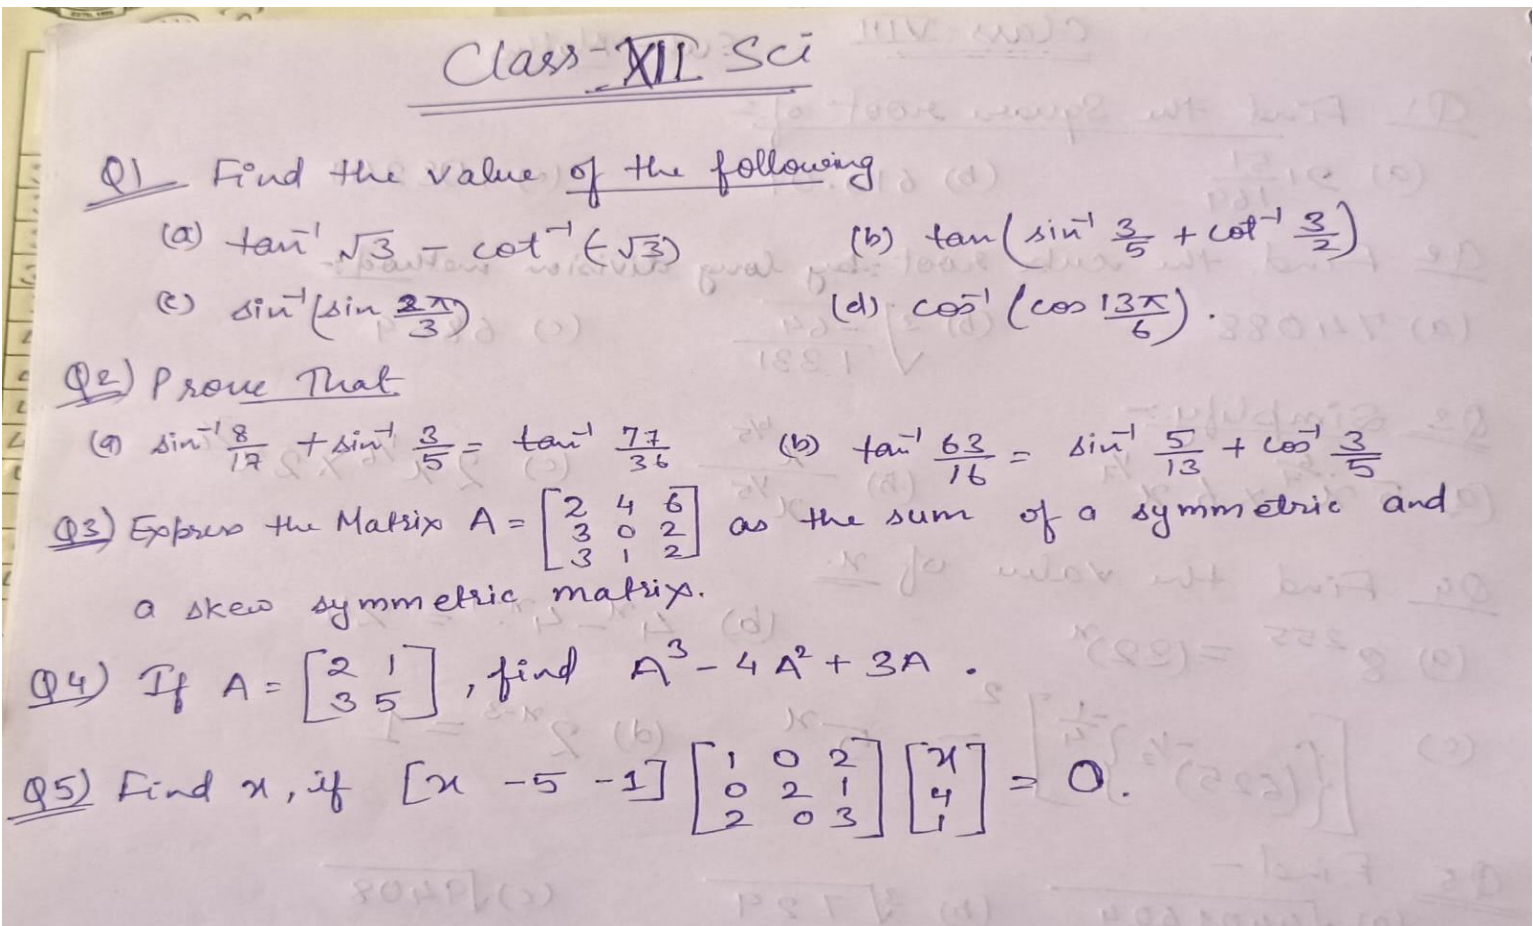 Class-XII Sci
Q1 Find the value of the following
(a) tan⁻¹ √3 - cot⁻¹ (-√3) (b) tan(sin⁻¹ 3/5 + cot⁻¹ 3/2)
(c) sin⁻¹(sin 2π/3) (d) cos⁻¹ (cos 13π/6).
Q2) Prove That
(a) sin⁻¹ 8/17 + sin⁻¹ 3/5 = tan⁻¹ 77/36 (b) tan⁻¹ 63/16 = sin⁻¹ 5/13 + cos⁻¹ 3/5
Q3) Express the Matrix A = [2 4 6; 3 0 2; 3 1 2] as the sum of a symmetric and
a skew symmetric matrix.
Q4) If A = [2 1; 3 5], find A³ - 4A² + 3A.
Q5) Find x, if [x -5 -1] [1 0 2; 0 2 1; 2 0 3] [x; 4; 1] = 0.